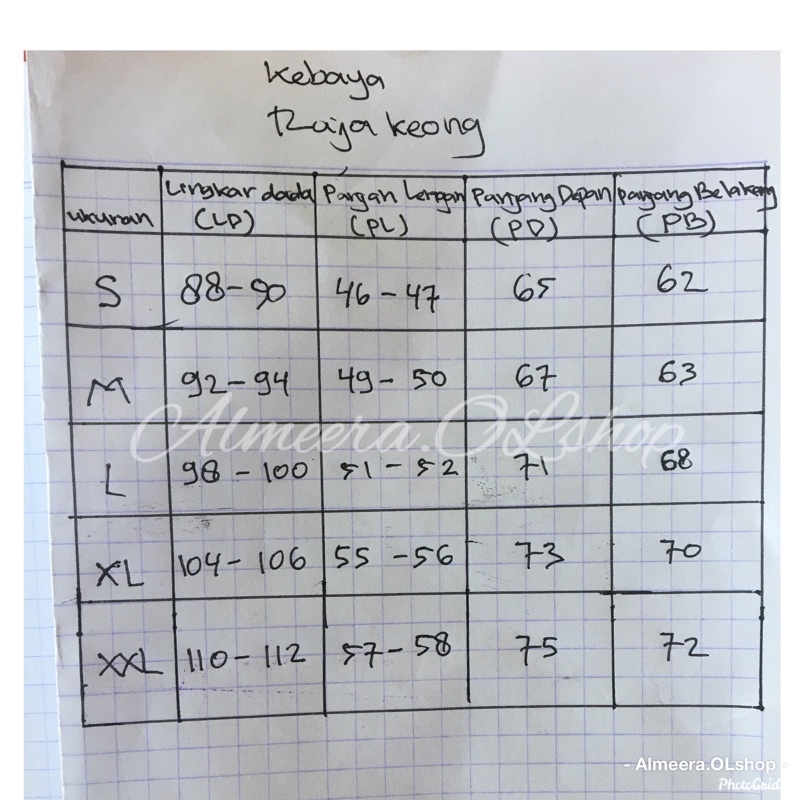 Kebaya
Raja keong
ukuran Lingkar dada (LD) Pangan Lengan (PL) Panjang Depan (PD) panjang Belakang (PB)
S 88-90 46-47 65 62
M 92-94 49-50 67 63
L 98-100 51-52 71 68
XL 104-106 55-56 73 70
XXL 110-112 57-58 75 72
Almeera.OLshop
- Almeera.OLshop -
PhotoGrid